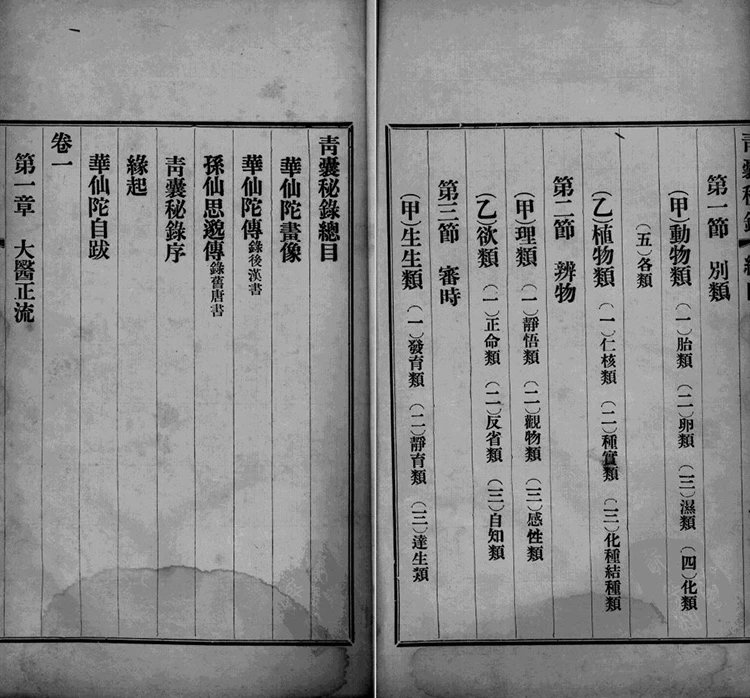 青囊秘錄總目
華仙陀畫像
華仙陀傳錄後漢書
孫仙思邈傳錄舊唐書
青囊秘錄序
緣起
華仙陀自跋
卷一
第一章 大醫正流
第一節 別類
(甲)動物類 (一)胎類 (二)卵類 (三)濕類 (四)化類
(五)各類
(乙)植物類 (一)仁核類 (二)種實類 (三)化種結種類
第二節 辨物
(甲)理類 (一)靜悟類 (二)觀物類 (三)感性類
(乙)欲類 (一)正命類 (二)反省類 (三)自知類
第三節 審時
(甲)生生類 (一)發育類 (二)靜育類 (三)達生類